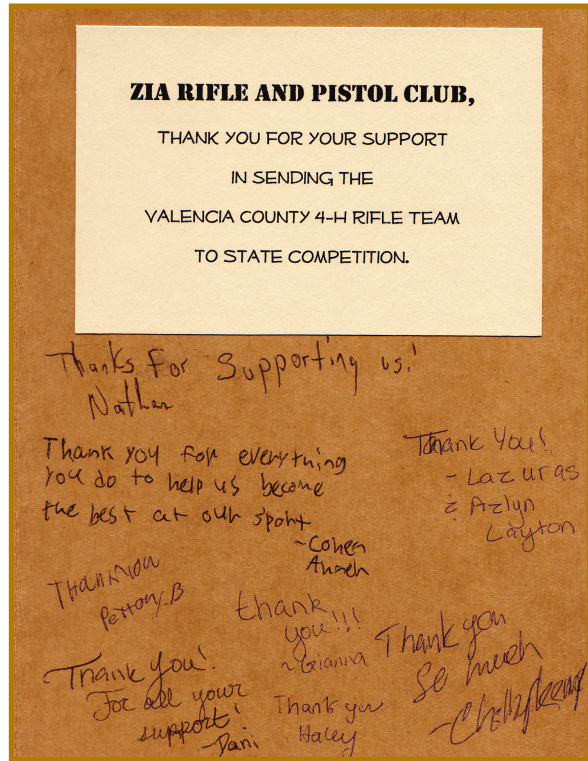 ZIA RIFLE AND PISTOL CLUB,
THANK YOU FOR YOUR SUPPORT
IN SENDING THE
VALENCIA COUNTY 4-H RIFLE TEAM
TO STATE COMPETITION.
Thanks for Supporting us!
Nathan
Thank you for everything
you do to help us become
the best at our sport
~Cohen
Thank You!
- Lazuras
& Azlyn
Layton
Thank You
thank
you!!!
~Gianna
Thank you!
For all your
support!
~Dani
Thank you
Haley
Thank you
So much